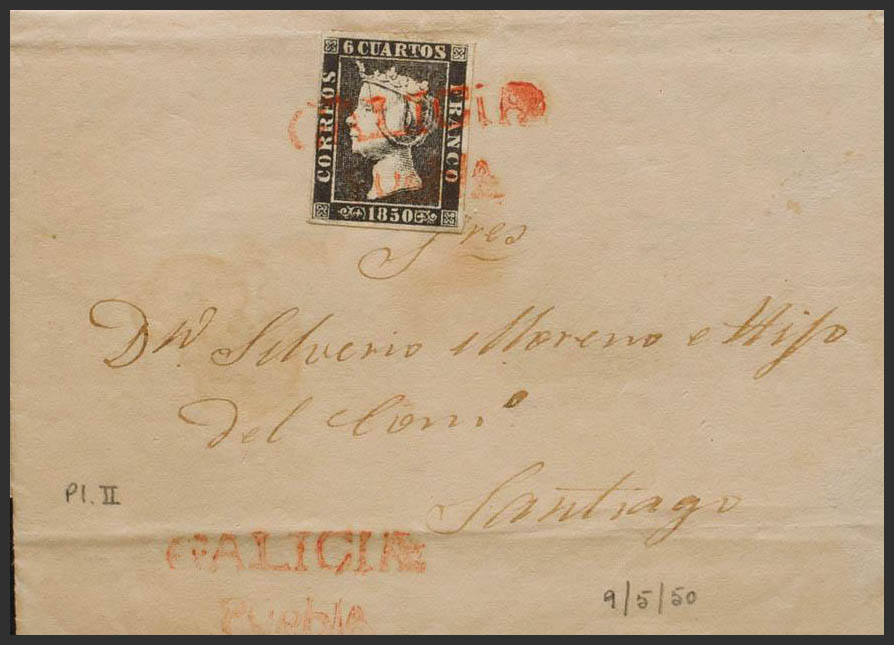 6 CUARTOS
CORREOS
FRANCO
1850
Sres
Dn. Silverio Moreno e Hijo
del Como
Santiago
Pl. II
GALICIA
Puebla
9/5/50